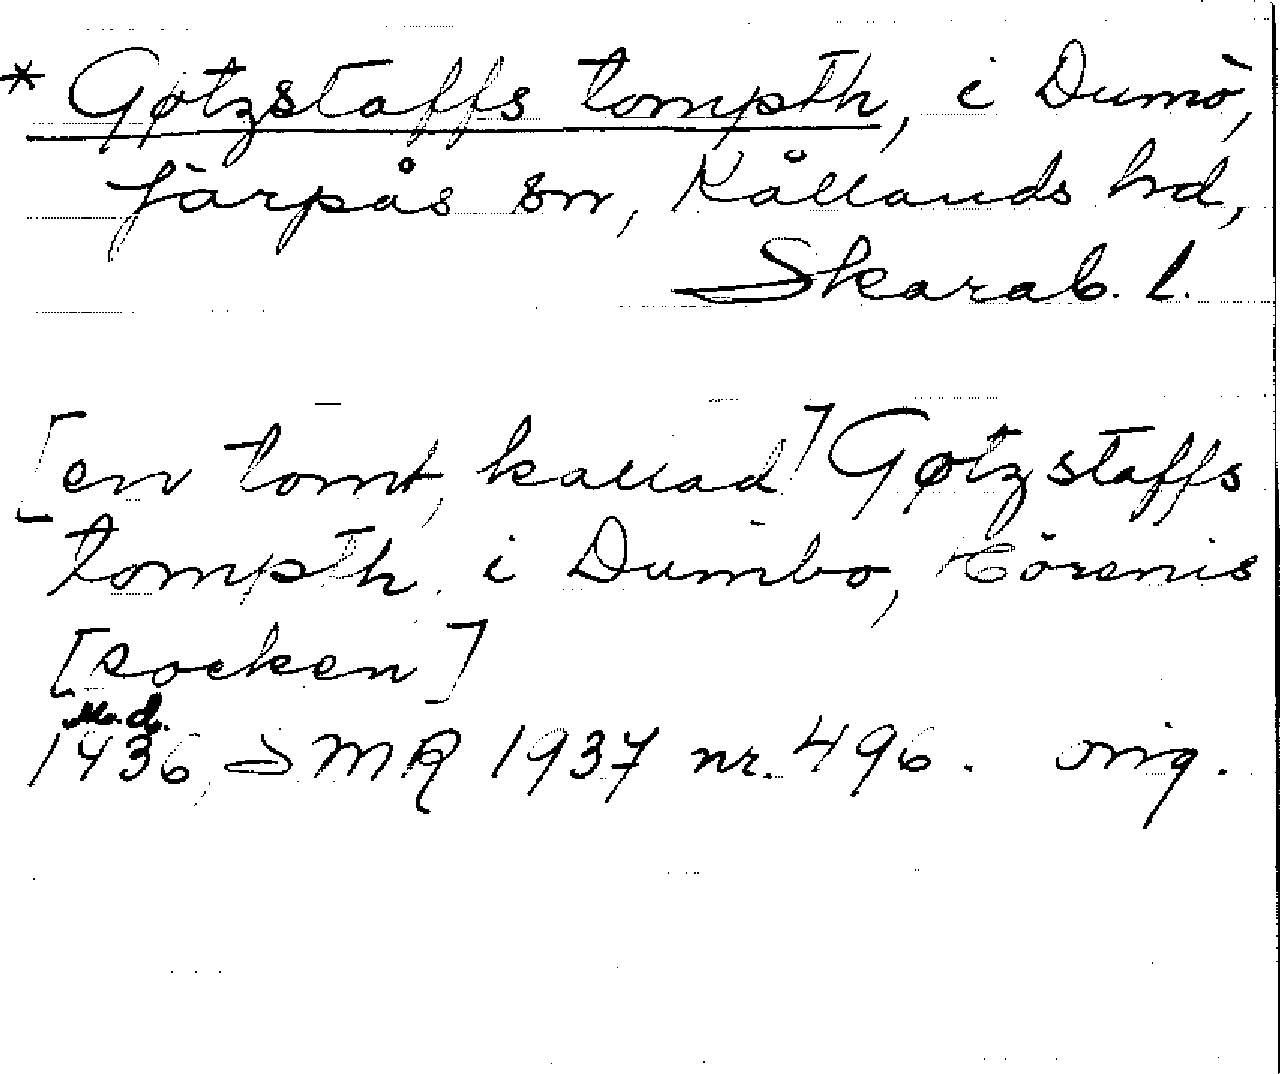 * Gøtzstaffs tompth, i Dumö,
Järpås sn, Kållands hd,
Skarab. l.
[en tomt, kallad] Gøtzstaffs
tompth i Dumbo,
[socken]
1436, SMR 1937 nr. 496. orig.